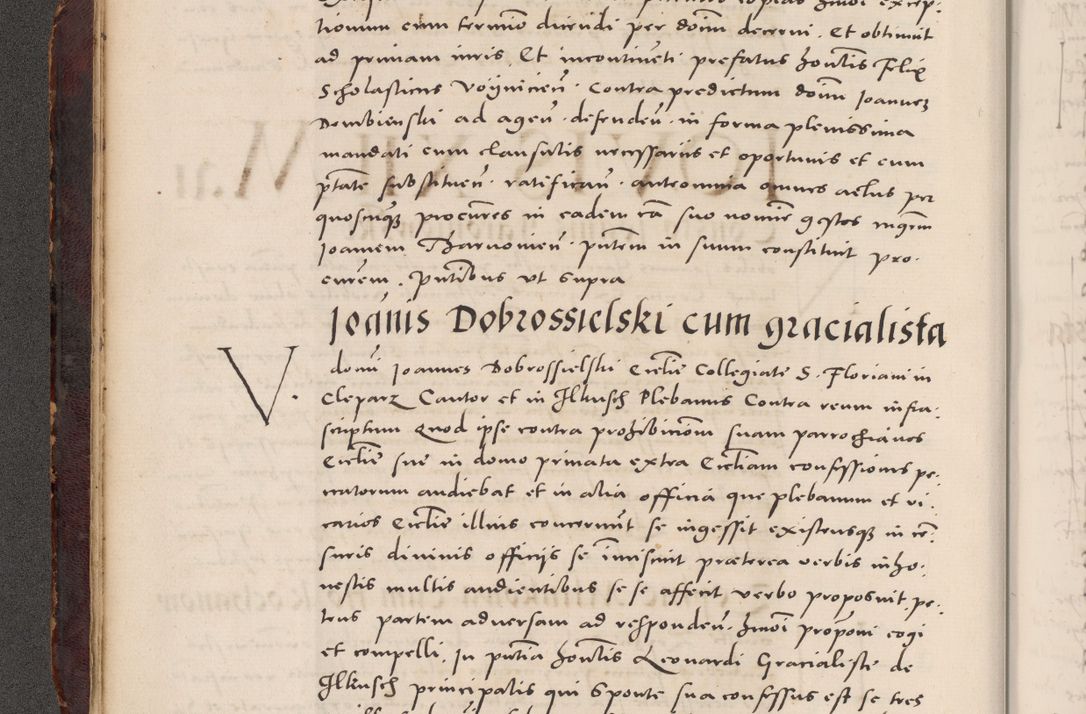 tionum cum termino dicendi per dom̃ decerni. Et obtinuit
ad primam iuris Et incontinẽti prefatus hoñlis Felix
Scholasticus Voynicieñ. Contra predictum dom̃ Joannem
Dembienski ad ageñ. defendeñ. in forma plenissima
mandati cum clausulis necessariis et oportunis et cum
ptãte substitueñ. ratificañ. anteomnia omnes actus per
quoscũq3 procũres in eadem cã suo nomine gestos mgrm̃
Joannem Tharnovieñ. pñtem in suum constituit pro-
curem̃. pñtibus ut supra
Joãnis Dobrossielski cum gracialista
V. domñ Joannes Dobrossielski Eccliẽ Collegiate S. Floriani in
Cleparz Cantor et in Ilkusch Plebanus Contra reum infra-
scriptum Quod ipse contra prohibicioñm suam parrochiãnos
Eccliẽ sue in domo priuata extra Eccliam confessiones pe-
ccatorum audiebat et in alia officia que plebanum et vi-
carios Eccliẽ illius concernunt se ingessit existensq3 in cẽ-
suris divinis officijs se imiscuit præterea verbis inho-
nestis multis audientibus se se affecit, verbo proposuit, pe-
tens partem adversam ad respondeñ. hm̃oi propõni cogi
et compelli. In pñtia hoñlis Leonardi Gracialiste de
Ilkusch principalis qui sponte sua confessus est se tres